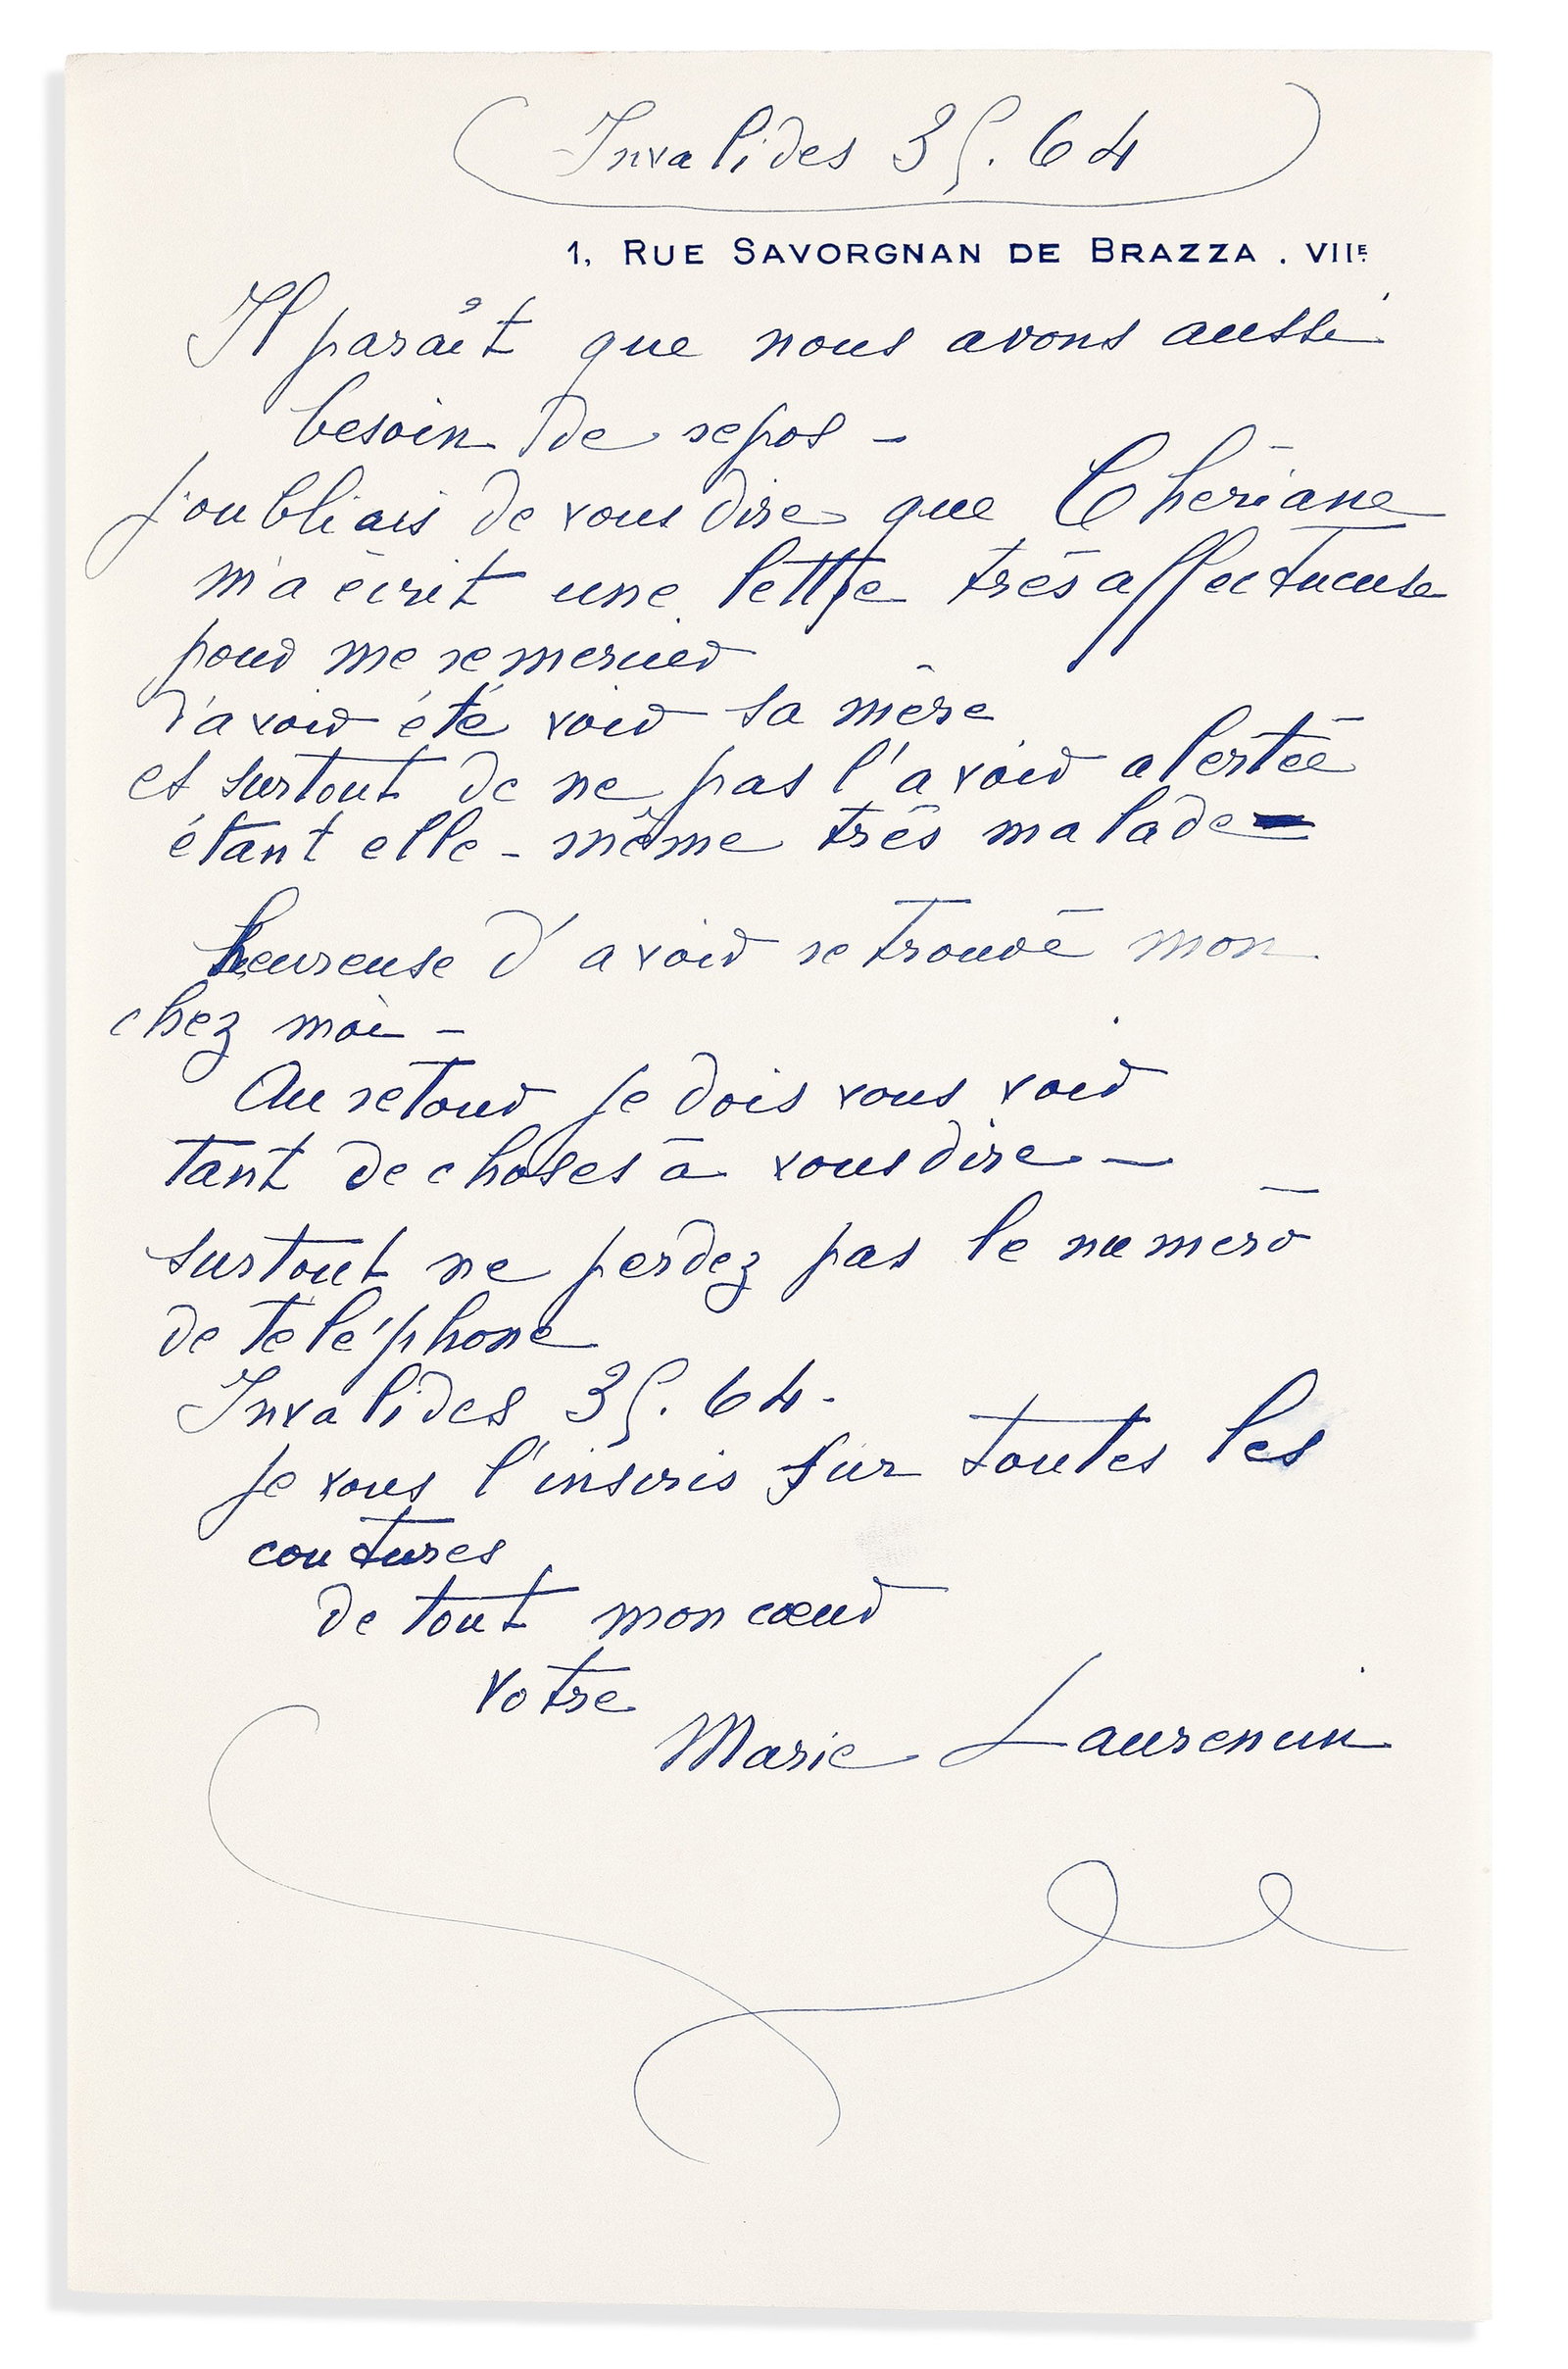 Invalides 35.64
1, RUE SAVORGNAN DE BRAZZA . VIIE.
Il paraît que nous avons aussi
besoin de repos -
j'oubliais de vous dire que Chériane
m'a écrit une lettre très affectueuse
pour me remercier
d'avoir été voir sa mère
et surtout de ne pas l'avoir alertée
étant elle-même très malade
heureuse d'avoir retrouvé mon
chez moi -
Au retour je dois vous voir
tant de choses à vous dire -
surtout ne perdez pas le numéro
de téléphone
Invalides 35.64.
je vous l'inscris sur toutes les
coutures
de tout mon cœur
votre
Marie Laurencin